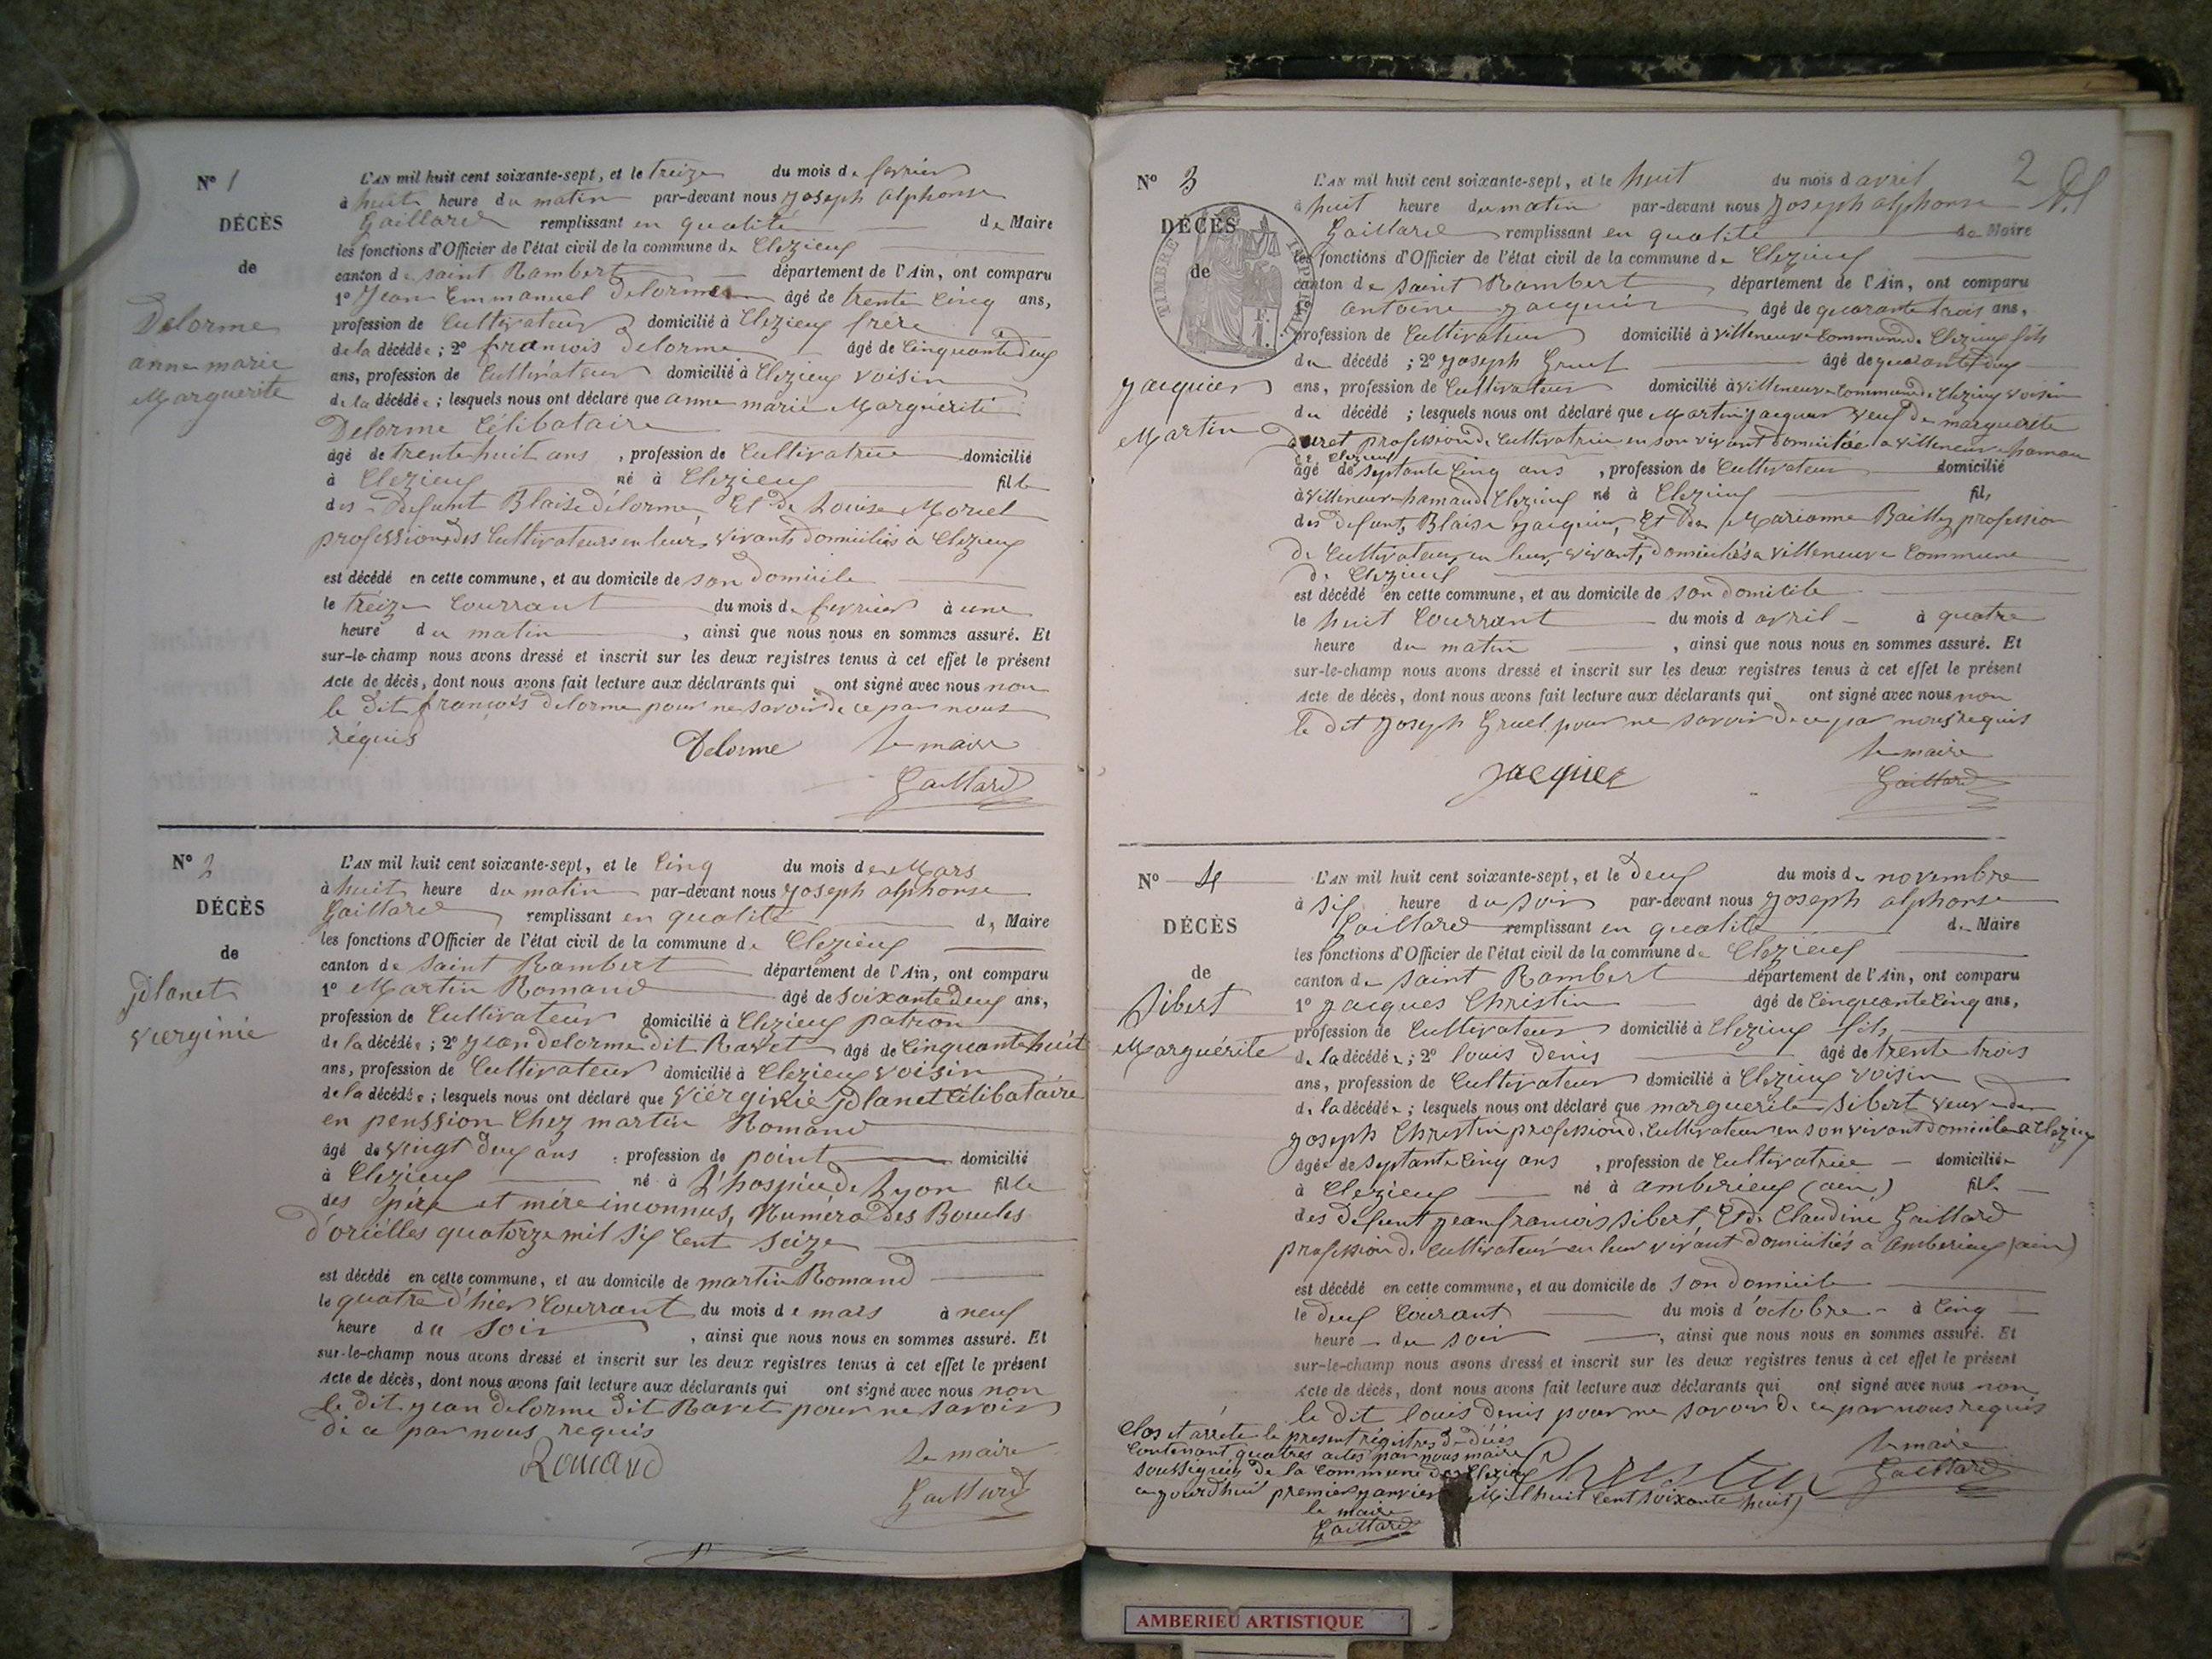 N° 1
DÉCÈS
de
Delorme
anne marie
Marguerite
L'AN mil huit cent soixante-sept, et le treize du mois de fevrier
à huit heure du matin par-devant nous Joseph alphonse
Gaillard remplissant en qualité de Maire
les fonctions d'Officier de l'état civil de la commune de Clezieu
canton de saint Rambert département de l'Ain, ont comparu
1° Jean Emmanuel Delorme âgé de trente cinq ans,
profession de Cultivateur domicilié à Clezieu frère
de la décédée ; 2° françois Delorme âgé de Cinquante deux
ans, profession de Cultivateur domicilié à Clezieu voisin
de la décédée ; lesquels nous ont déclaré que anne marie Marguerite
Delorme Célibataire
âgé de trente huit ans , profession de Cultivatrice domicilié
à Clezieu né à Clezieu fille
des defunt Blaise Delorme, Et De Louise Moriel
professions des Cultivateurs en leurs vivants domiciliés à Clezieu
est décédé en cette commune, et au domicile de son domicile
le treize Courrant du mois de fevrier à une
heure du matin , ainsi que nous nous en sommes assuré. Et
sur-le-champ nous avons dressé et inscrit sur les deux registres tenus à cet effet le présent
Acte de décès, dont nous avons fait lecture aux déclarants qui ont signé avec nous non
le dit françois Delorme pour ne savoir de ce par nous
requis
Delorme le maire
Gaillard
N° 2
DÉCÈS
de
planet
vierginie
L'AN mil huit cent soixante-sept, et le Cinq du mois de Mars
à huit heure du matin par-devant nous Joseph alphonse
Gaillard remplissant en qualité de Maire
les fonctions d'Officier de l'état civil de la commune de Clezieu
canton de saint Rambert département de l'Ain, ont comparu
1° Martin Romand âgé de soixante deux ans,
profession de Cultivateur domicilié à Clezieu patron
de la décédée ; 2° Jean delorme dit Ravet âgé de Cinquante huit
ans, profession de Cultivateur domicilié à Clezieu voisin
de la décédée ; lesquels nous ont déclaré que Viérginie planet Célibataire
en penssion Chez martin Romand
âgé de vingt deux ans , profession de point domicilié
à Clezieu né à L'hospice de Lyon fille
des père et mère inconnus, Numéro des Boucles
d'oriélles quatorze mil six Cent seize
est décédé en cette commune, et au domicile de martin Romand
le quatre d'hier Courrant du mois de mars à neuf
heure du soir , ainsi que nous nous en sommes assuré. Et
sur-le-champ nous avons dressé et inscrit sur les deux registres tenus à cet effet le présent
Acte de décès, dont nous avons fait lecture aux déclarants qui ont signé avec nous non
le dit Jean Delorme dit Ravet pour ne savoir
de ce par nous requis
Romand le maire
Gaillard
2
N° 3
DÉCÈS
de
TIMBRE IMPERIAL
Jacquier
Martin
L'AN mil huit cent soixante-sept, et le huit du mois d avril
à huit heure du matin par-devant nous Joseph alphonse
Gaillard remplissant en qualité de Maire
les fonctions d'Officier de l'état civil de la commune de Clezieu
canton de saint Rambert département de l'Ain, ont comparu
antoine Jacquier âgé de quarante trois ans,
profession de Cultivateur domicilié à villeneuve Commune de Clezieu fils
du décédé ; 2° Joseph Gruel âgé de quarante deux
ans, profession de Cultivateur domicilié à villeneuve Commune de Clezieu voisin
du décédé ; lesquels nous ont déclaré que Martin Jacquier veuf de marguerite
profession de Cultivatrice en son vivant domiciliée à villeneuve hamau
de Clezieu
âgé de septante Cinq ans , profession de Cultivateur domicilié
à villeneuve hamau de Clezieu né à Clezieu fils
des defunts Blaise Jacquier, Et De Marianne Baillez profession
de Cultivateurs en leur vivants, domiciliés à villeneuve Commune
de Clezieu
est décédé en cette commune, et au domicile de son domicile
le huit Courrant du mois d avril à quatre
heure du matin , ainsi que nous nous en sommes assuré. Et
sur-le-champ nous avons dressé et inscrit sur les deux registres tenus à cet effet le présent
Acte de décès, dont nous avons fait lecture aux déclarants qui ont signé avec nous non
le dit Joseph Gruel pour ne savoir de ce par nous requis
le maire
Jacquier Gaillard
N° 4
DÉCÈS
de
Sibert
Marguérite
L'AN mil huit cent soixante-sept, et le deux du mois de novembre
à six heure du soir par-devant nous Joseph alphonse
Gaillard remplissant en qualité de Maire
les fonctions d'Officier de l'état civil de la commune de Clezieu
canton de saint Rambert département de l'Ain, ont comparu
1° Jacques Christin âgé de Cinquante Cinq ans,
profession de Cultivateur domicilié à Clezieu fils
de la décédée ; 2° louis denis âgé de trente trois
ans, profession de Cultivateur domicilié à Clezieu voisin
de la décédée ; lesquels nous ont déclaré que marguerite Sibert veuve de
Joseph Christin profession de Cultivateur en son vivant domicile à Clezieu
âgée de septante Cinq ans , profession de Cultivatrice domiciliée
à Clezieu né à amberieux (ain) fille
des defunt Jean francois Sibert, Et de Claudine Gaillard
profession de Cultivateur en leur vivant domiciliés à Amberieux (ain)
est décédé en cette commune, et au domicile de son domicile
le deux Courant du mois d'octobre à Cinq
heure du soir , ainsi que nous nous en sommes assuré. Et
sur-le-champ nous avons dressé et inscrit sur les deux registres tenus à cet effet le présent
Acte de décès, dont nous avons fait lecture aux déclarants qui ont signé avec nous non
le dit louis denis pour ne savoir de ce par nous requis
Christin le maire
Gaillard
Clos et arrété le present régistres de décès
Contenant quatres actes par nous maire
soussignés de la Commune de Clezieu
aujourdhui premier janvier Mil huit Cent soixante huit
le maire
Gaillard
AMBERIEU ARTISTIQUE